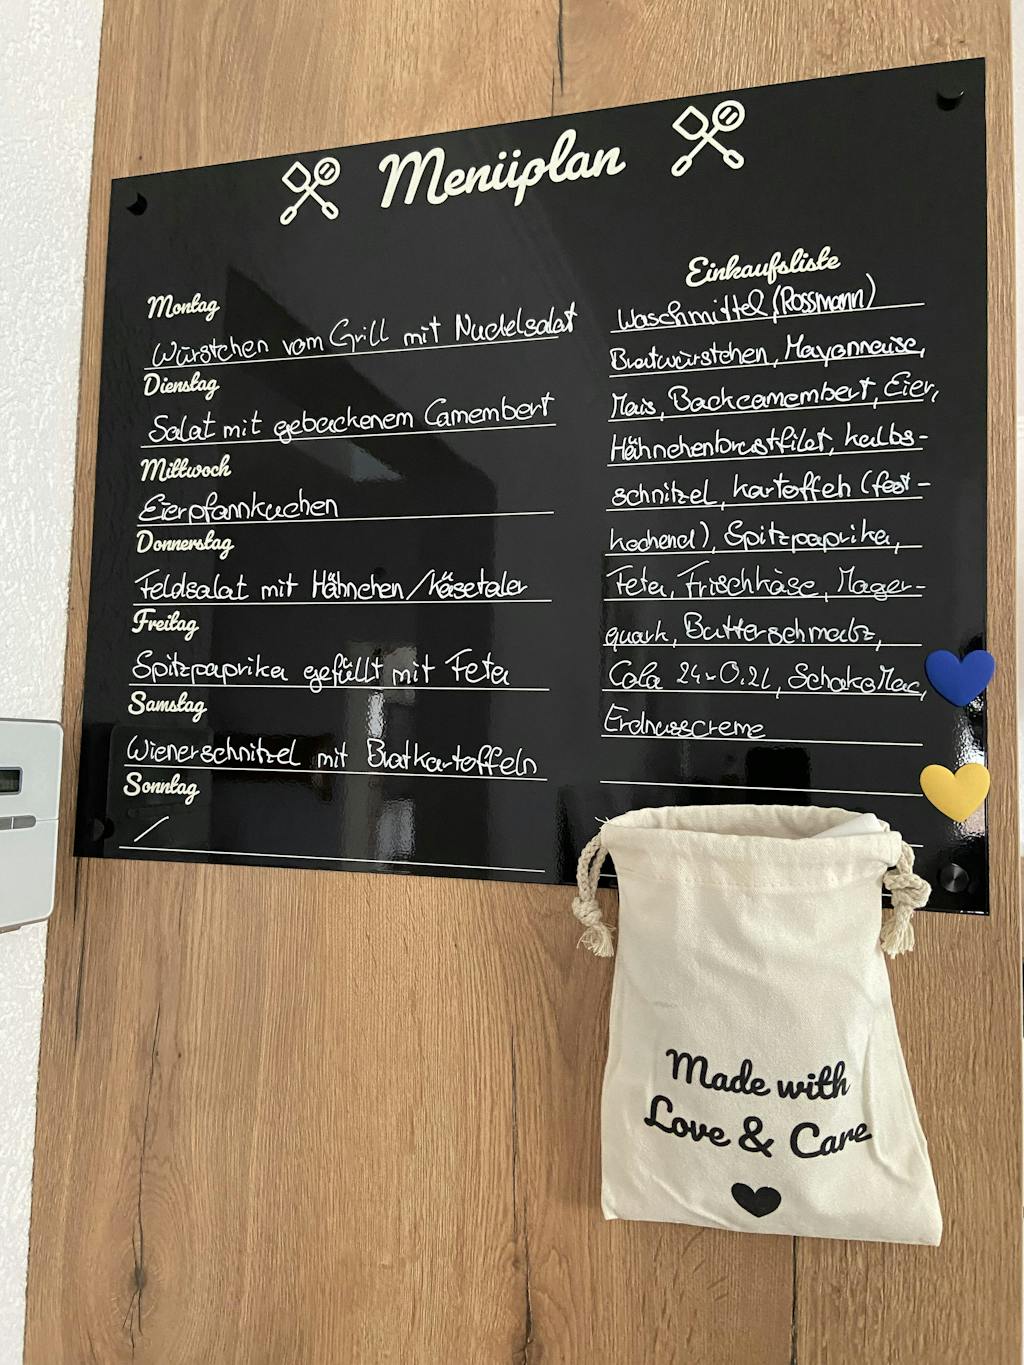 Menüplan
Montag
Würstchen vom Grill mit Nudelsalat
Dienstag
Salat mit gebackenem Camembert
Mittwoch
Eierpfannkuchen
Donnerstag
Feldsalat mit Hähnchen/Käsetaler
Freitag
Spitzpaprika gefüllt mit Feta
Samstag
Wienerschnitzel mit Bratkartoffeln
Sonntag
/
Einkaufsliste
Waschmittel (Rossmann)
Bratwürstchen, Mayonnaise,
Mais, Backcamembert, Eier,
Hähnchenbrustfilet, Kalbs-
schnitzel, Kartoffeln (fest-
kochend), Spitzpaprika,
Feta, Frischkäse, Mager-
quark, Butterschmalz,
Cola 24x0.2l, SchokoMac,
Erdnusscreme
Made with
Love & Care